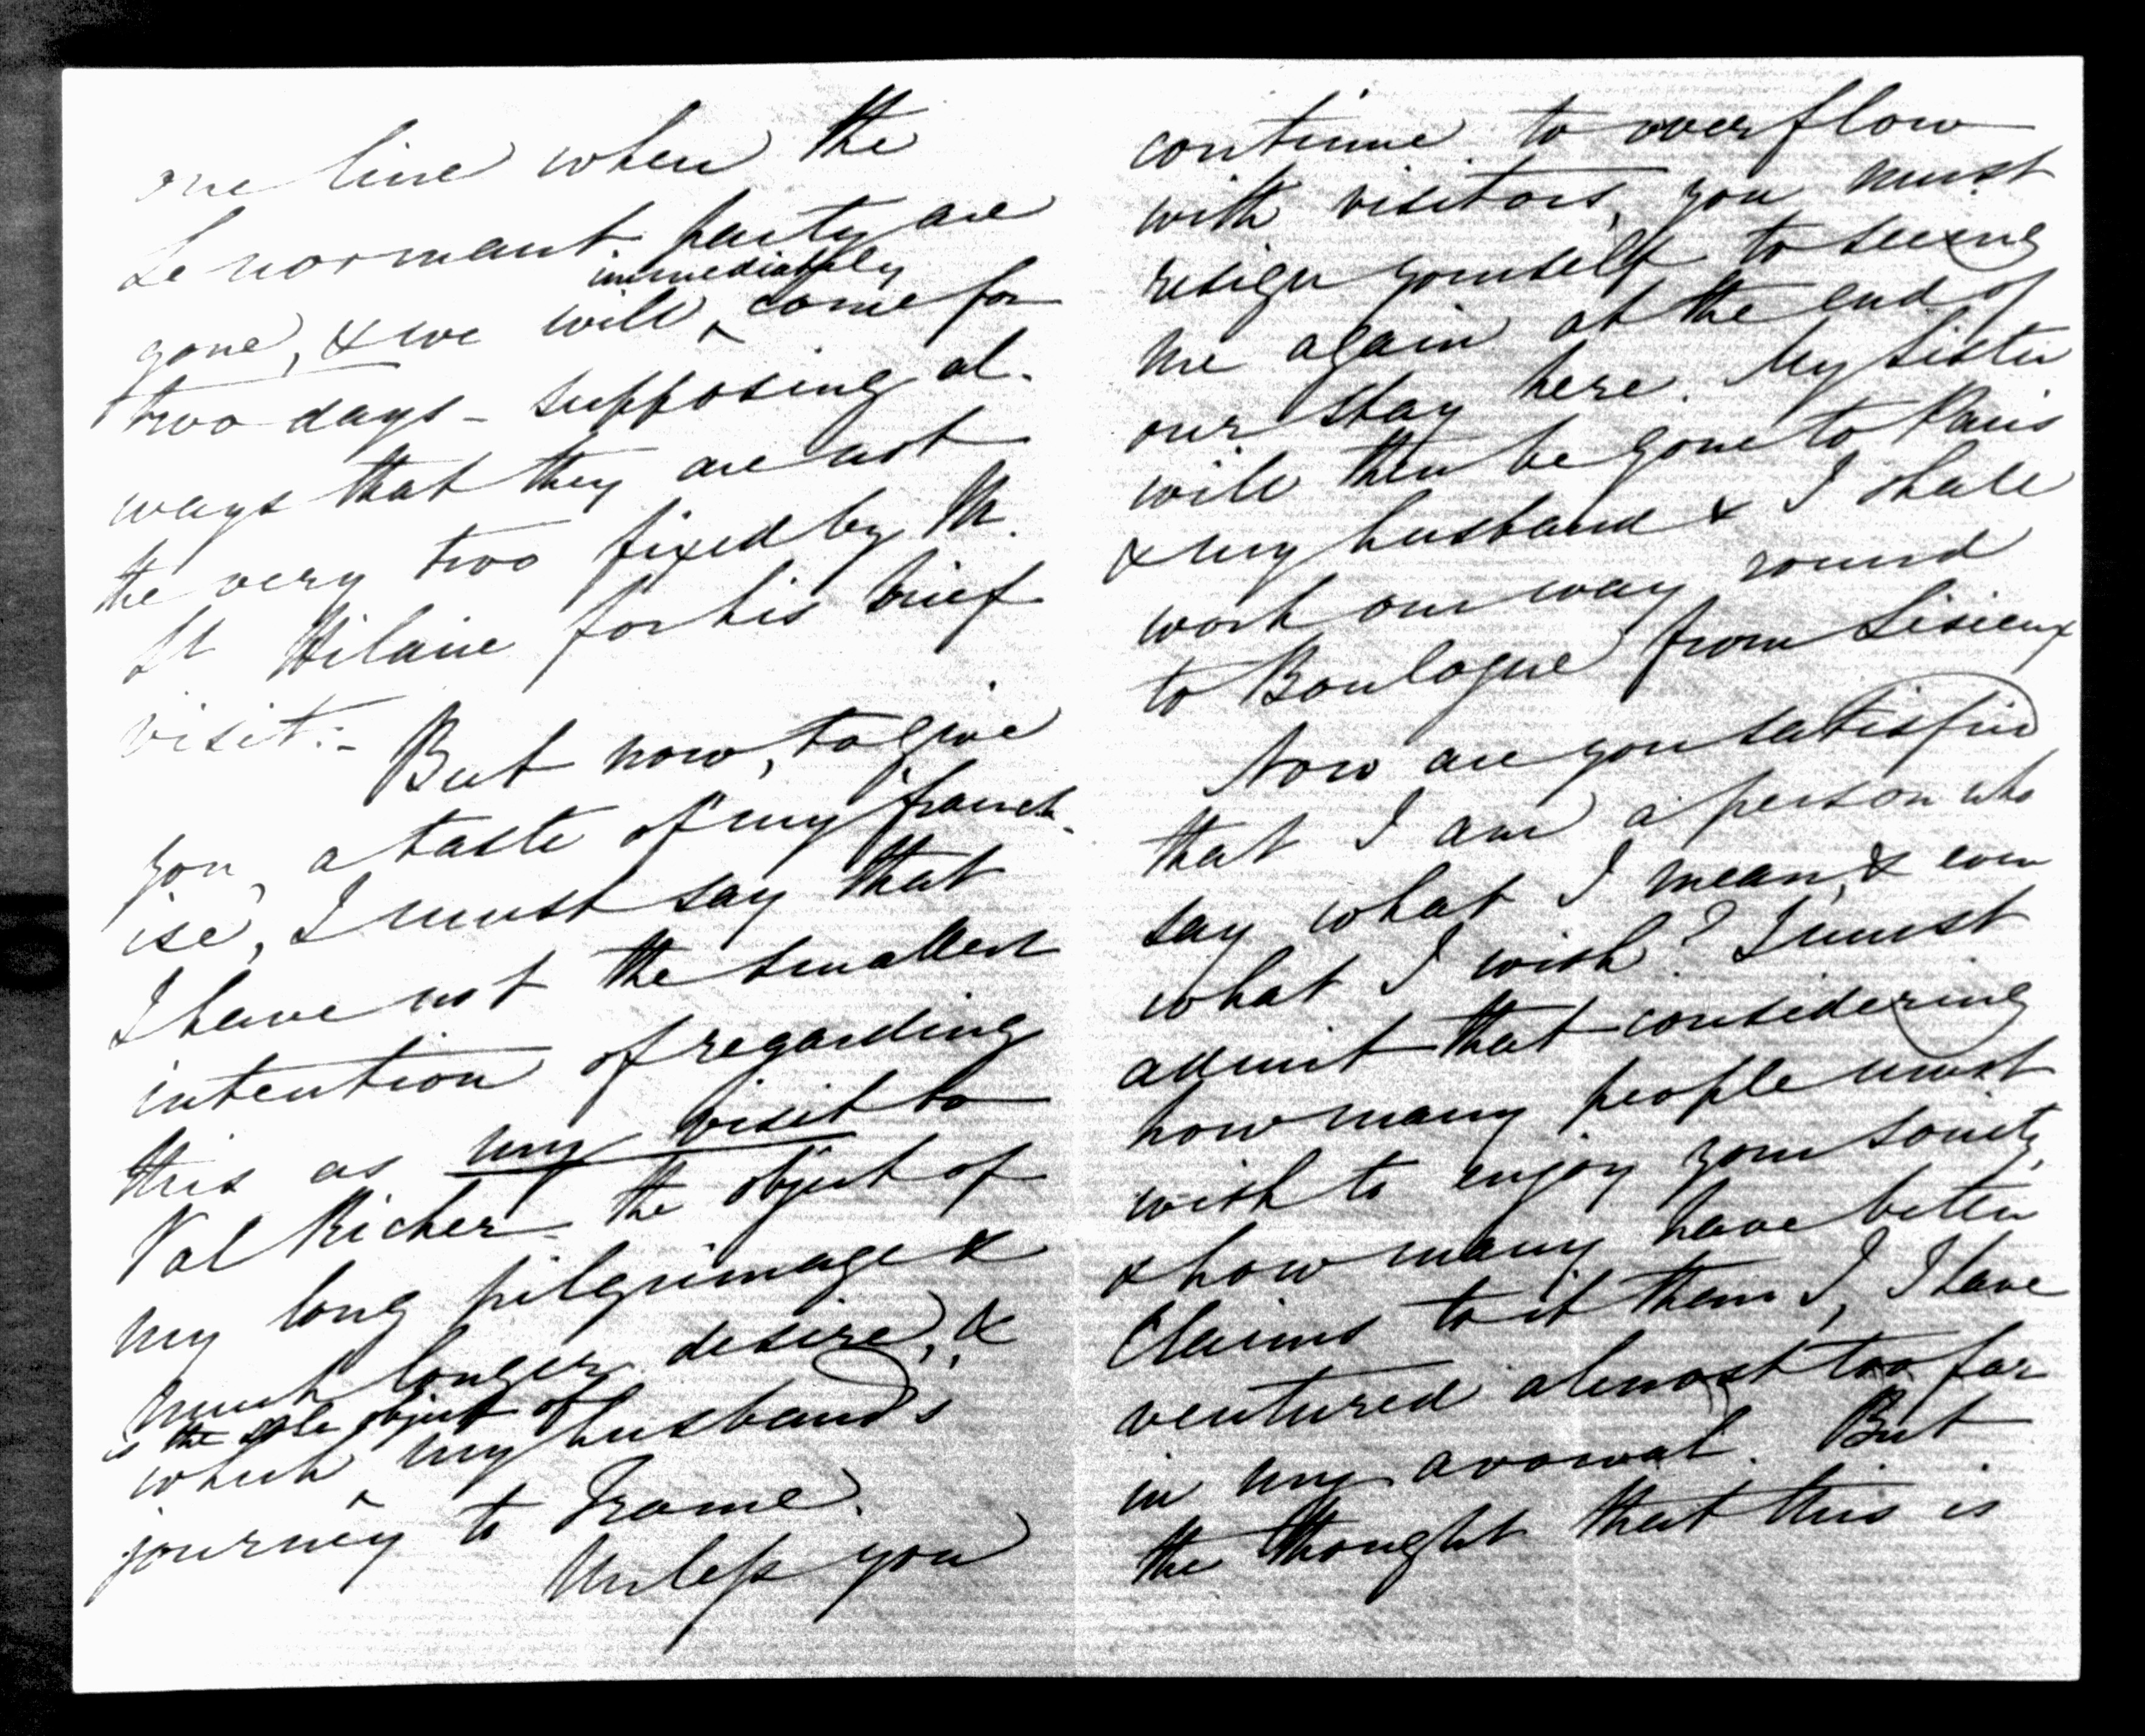 one line when the
Lenormant party are
immediately
gone, & we will ^ come for
two days – supposing al-
ways that they are not
the very two fixed by M.
St Hilaire for his brief
visit.–
But now, to give
you, a taste of my "franch-
ise", I must say that
I have not the smallest
intention of regarding
this as my visit to
Val Richer – the object of
my long pilgrimage &
much longer desire, &
is the sole object of
which ^ my husband's
journey to France.
Unless you
continue to overflow
with visitors, you must
resign yourself to seeing
me again at the end of
our stay here. My sister
will then be gone to Paris
& my husband & I shall
work our way round
to Boulogne from Lisieux
Now are you satisfied
that I am a person who
say what I mean, & even
what I wish? I must
admit that considering
how many people must
wish to enjoy your society,
& how many have better
claims to it than I, I have
ventured almost too far
in my avowal. But
the thought that this is